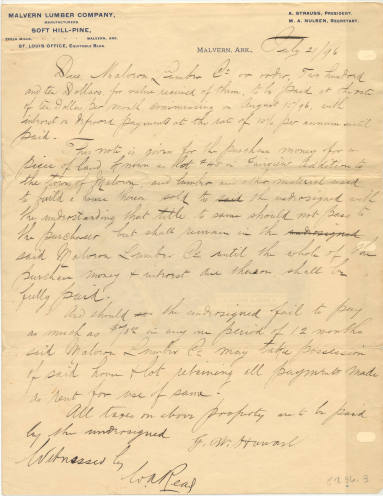 MALVERN LUMBER COMPANY,
MANUFACTURERS
SOFT HILL-PINE,
MALVERN, ARK.
ST. LOUIS OFFICE, EQUITABLE BLDG.
A. STRAUSS, PRESIDENT.
M. A. NULSEN, SECRETARY.
MALVERN, ARK., July 21/96
Due Malvern Lumber Co or order, Two hundred
and ten Dollars for value received of them, to be paid at the rate
of ten dollars per month commencing on August 15th 96, with
interest on deferred payments at the rate of 10% per annum until
paid.
This note is given for the purchase money for a
piece of land known as lot addition to
the town of Malvern, and lumber and other material used
to build a house thereon, sold to said the undersigned with
the understanding that title to same should not pass to
the purchaser but shall remain in the undersigned
said Malvern Lumber Co until the whole of the
purchase money & interest due thereon shall be
fully paid.
And should the undersigned fail to pay
as much as in any one period of 12 months
said Malvern Lumber Co may take possession
of said home & lot retaining all payments made
as rent for use of same.
All taxes on above property are to be paid
by the undersigned
F. W. Howard
Witnessed by